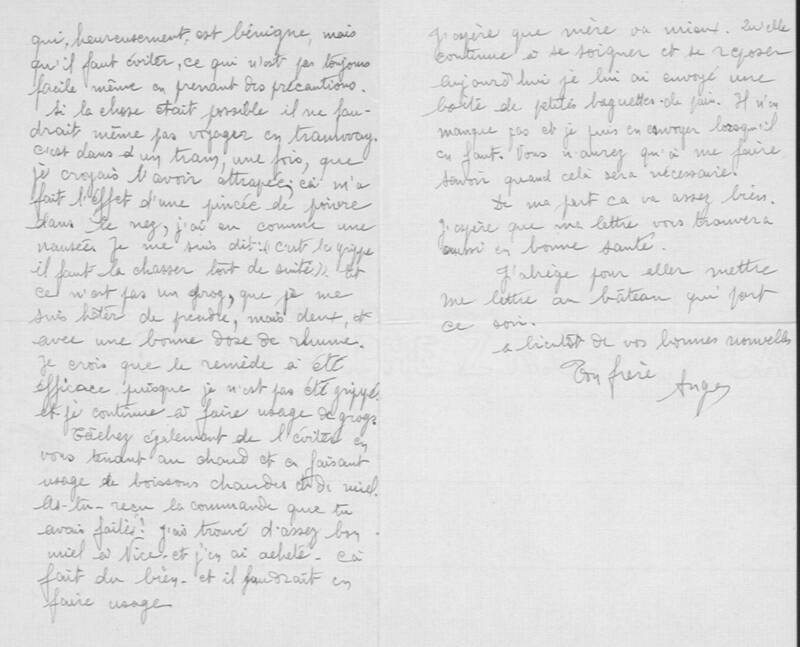 qui, heureusement, est bénigne, mais
qu'il faut éviter, ce qui n'est pas toujours
facile même en prenant des précautions.
Si la chose était possible il ne fau-
drait même pas voyager en tramway.
C'est dans un tram, une fois, que
je croyais l'avoir attrapée; çà m'a
fait l'effet d'une pincée de poivre
dans le nez, j'ai eu comme une
nausée. Je me suis dit: «c'est la grippe
il faut la chasser tout de suite.» Et
ce n'est pas un grog, que je me
suis hâter de prendre, mais deux, et
avec une bonne dose de rhume.
Je crois que le remède à été
efficace puisque je n'est pas été grippé
et je continue à faire usage de grogs
Tâchez également de l'éviter en
vous tenant au chaud et en faisant
usage de boissons chaudes et de miel.
As-tu-reçu la commande que tu
avais faite? J'ai trouvé d'assez bon
miel à Nice-et j'en ai acheté- Çà
fait du bien- et il faudrait en
faire usage
J'espère que mère va mieux. Qu'elle
continue à se soigner et se reposer
aujourd'hui je lui ai envoyé une
boîte de petites baguettes-de pain. Il n'en
manque pas et je puis en envoyer lorsqu'il
en faut. Vous n'aurez qu'à me faire
savoir quand celà sera nécessaire.
De ma part ça va assez bien.
J'espère que ma lettre vous trouvera
aussi en bonne santé.
J'abrège pour aller mettre
me lettre au bâteau qui part
ce soir.
a bientôt de vos bonnes nouvelles
Ton frère
Ange